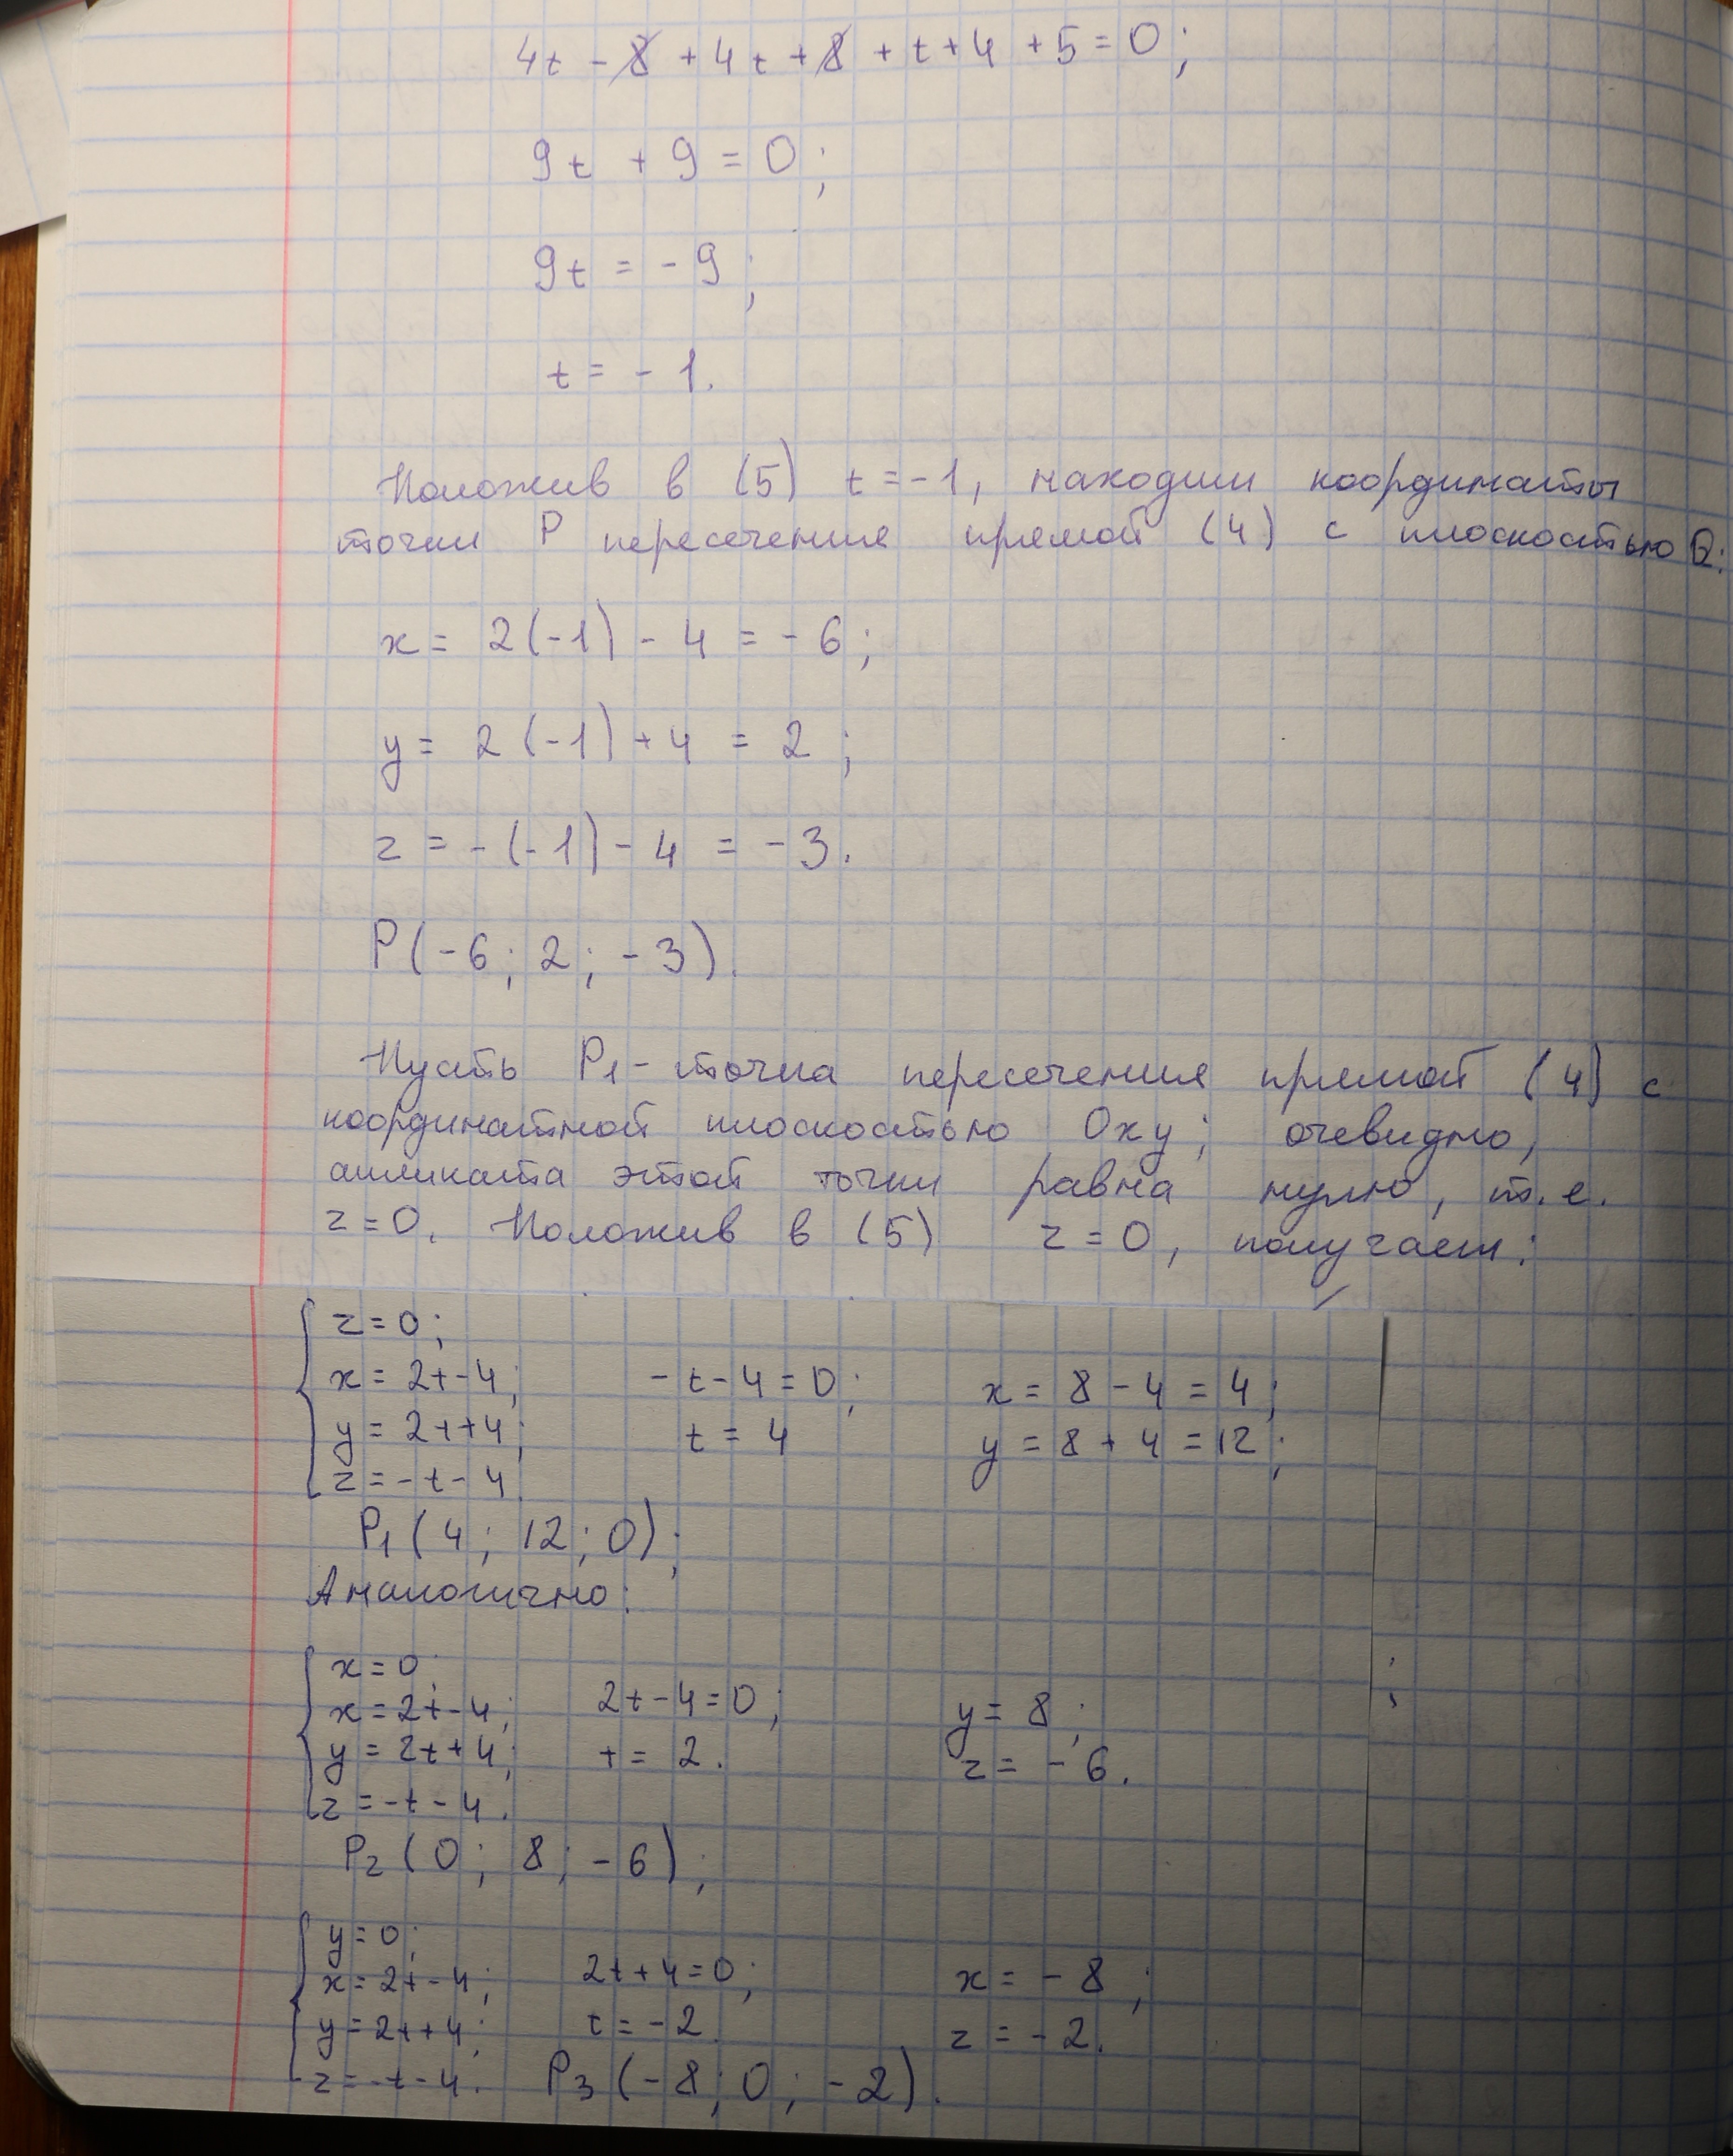 4t - 8 + 4t + 8 + t + 4 + 5 = 0;
9t + 9 = 0;
9t = - 9;
t = - 1.
Положив в (5) t = -1, находим координаты
точки P пересечения прямой (4) с плоскостью Q:
x = 2(-1) - 4 = - 6;
y = 2(-1) + 4 = 2;
z = -(-1) - 4 = -3.
P(-6; 2; -3).
Пусть P₁ - точка пересечения прямой (4) с
координатной плоскостью Oxy; очевидно,
аппликата этой точки равна нулю, т.е.
z = 0. Положив в (5) z = 0, получаем:
z = 0;
x = 2t - 4; - t - 4 = 0; x = 8 - 4 = 4;
y = 2t + 4; t = 4 y = 8 + 4 = 12;
z = - t - 4.
P₁(4; 12; 0);
Аналогично:
x = 0;
x = 2t - 4; 2t - 4 = 0; y = 8;
y = 2t + 4; t = 2. z = - 6.
z = - t - 4.
P₂(0; 8; -6);
y = 0;
x = 2t - 4; 2t + 4 = 0; x = - 8;
y = 2t + 4; t = - 2. z = - 2.
z = - t - 4. P₃(-8; 0; -2).